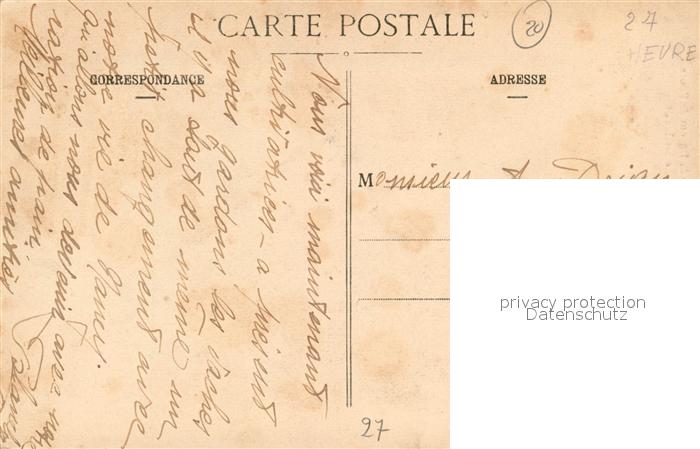 CARTE POSTALE
20
27
HEVRE
CORRESPONDANCE
ADRESSE
Nous voici maintenant
cultivatrices - a présent
nous gardons les vaches
il y a tout de même un
petit changement avec
notre vie de
qu'allons nous devenir avec
ration de pain
Meilleures amitiés
Monsieur
27
privacy protection
Datenschutz